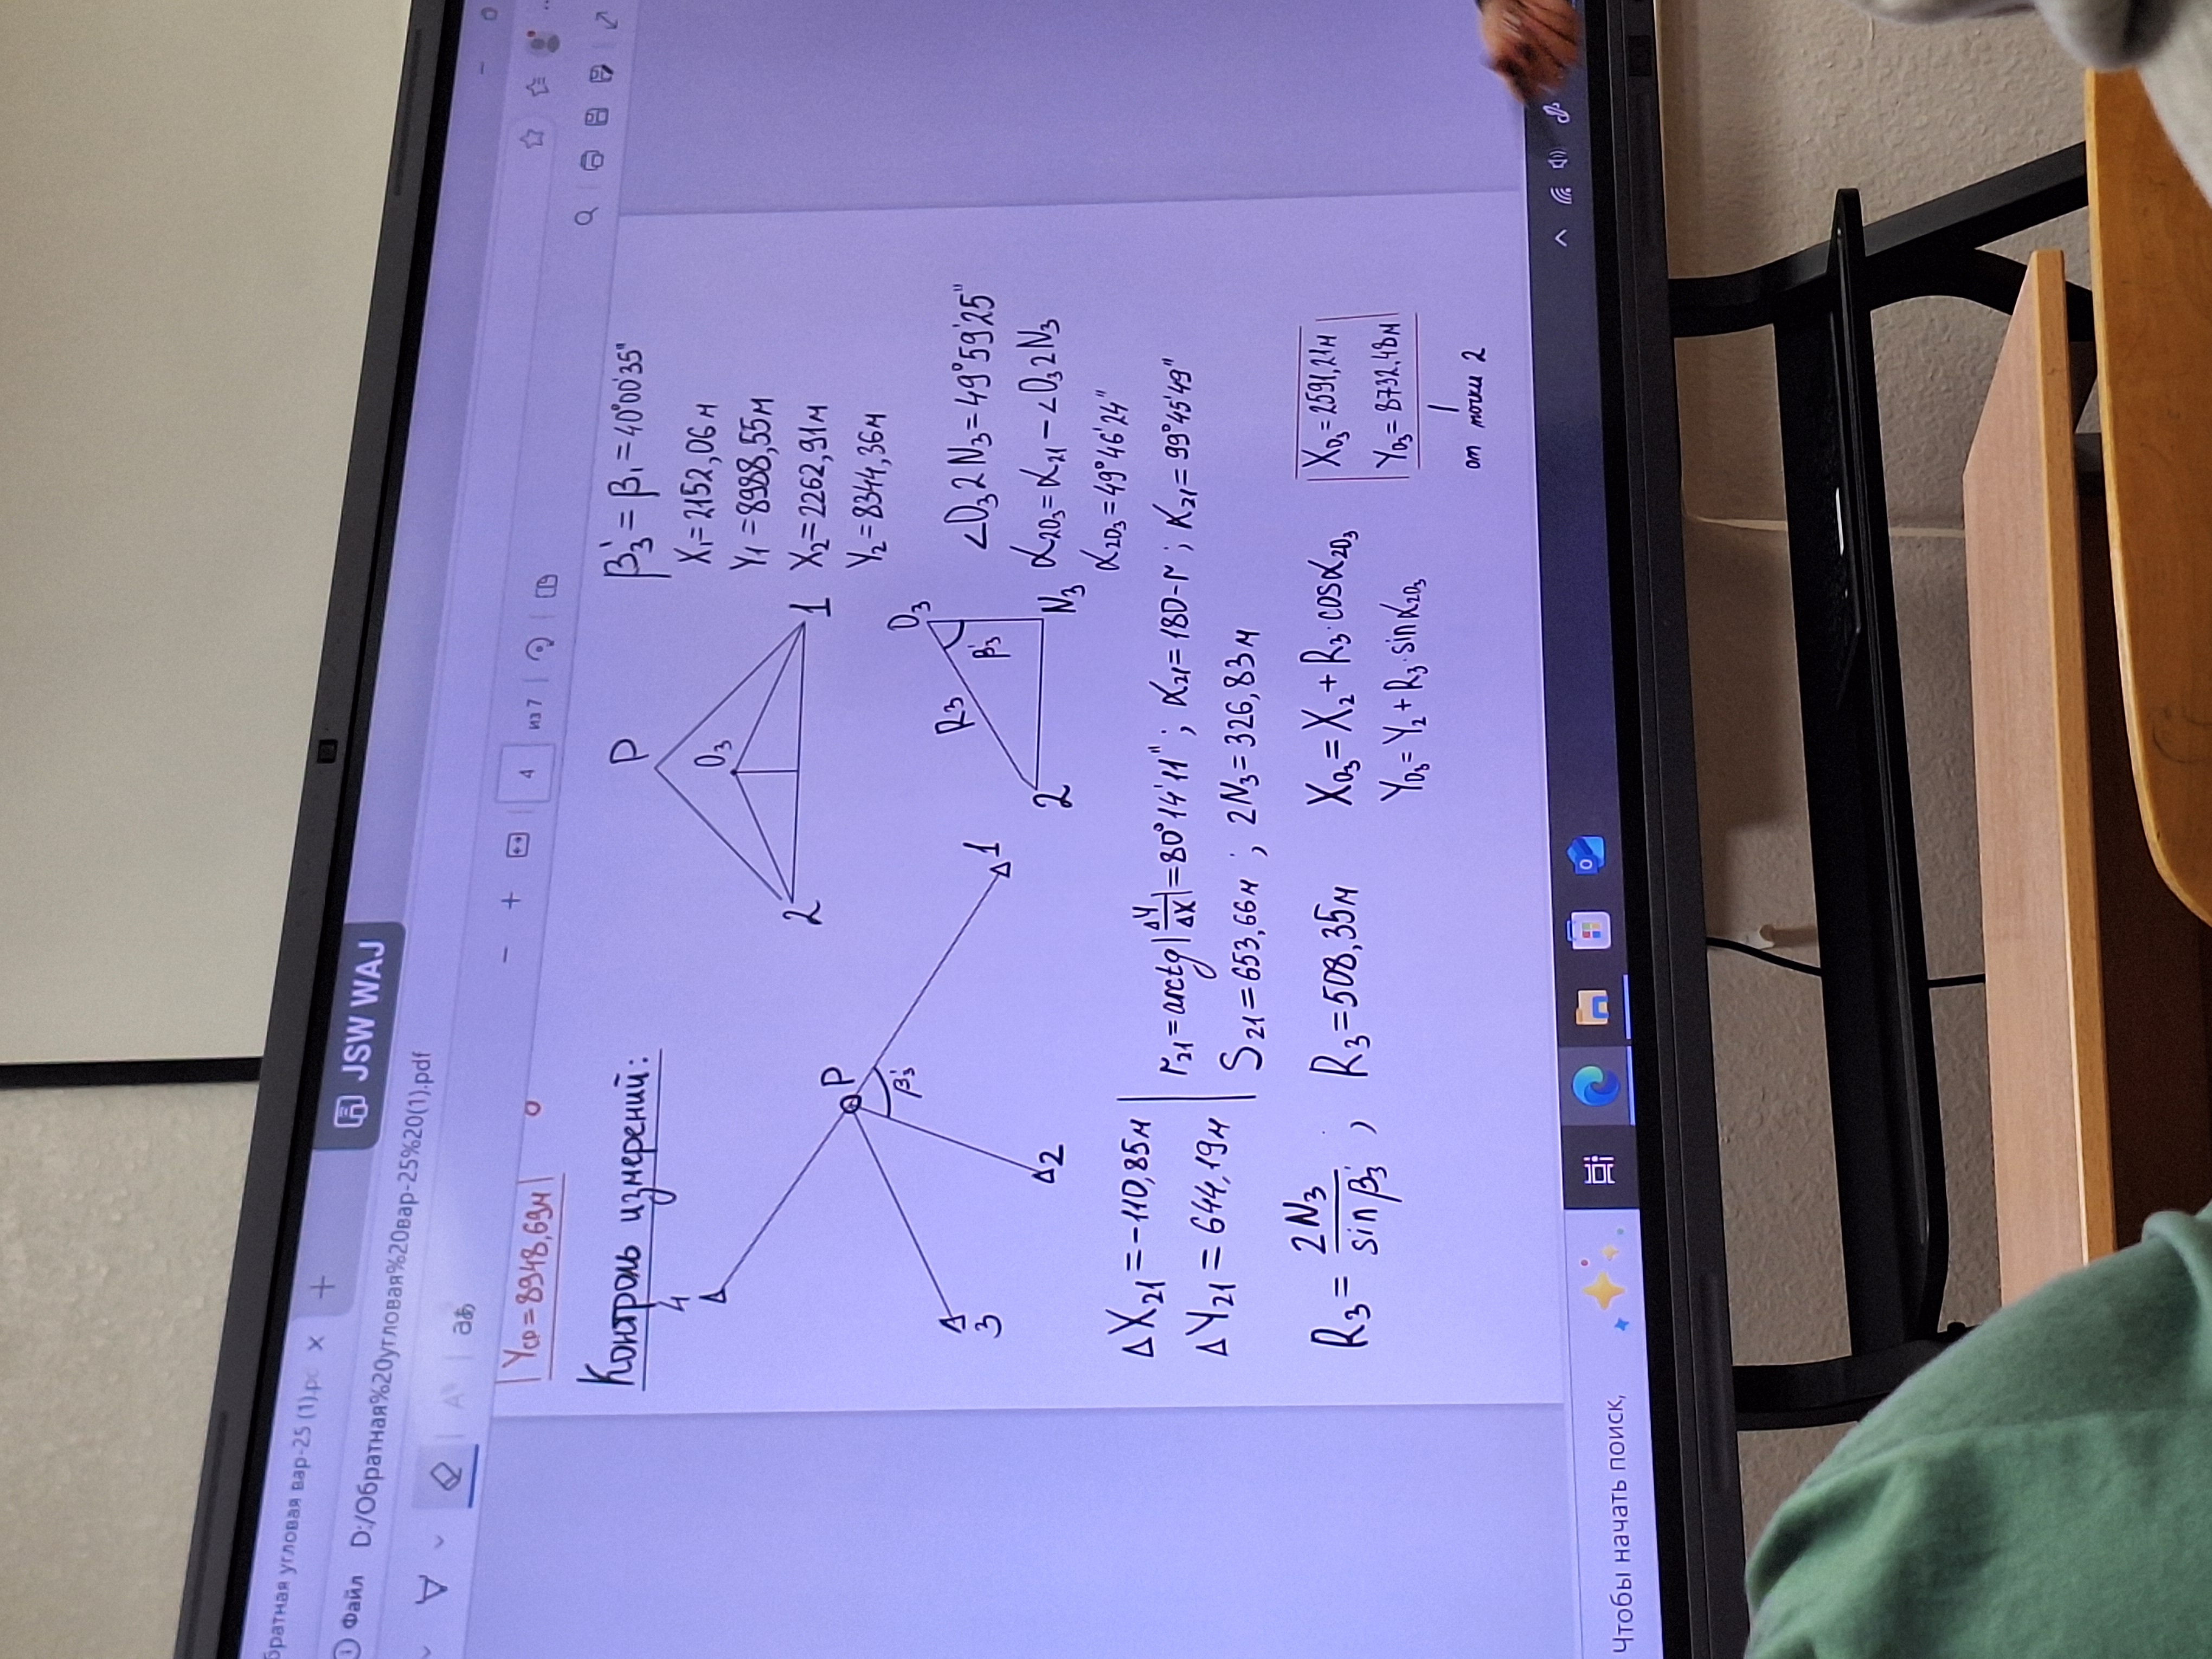 JSW WAJ
братная угловая вар-25 (1).pd × +
Файл D:/Обратная%20угловая%20вар-25%20(1).pdf
aあ
− + 4 из 7
Yср = 8948,69м
Контроль измерений:
4
3
P
β₃'
2
1
P
O₃
2
1
β₃' = β₁ = 40°00'35"
X₁ = 2152,06м
Y₁ = 8988,55м
X₂ = 2262,91м
Y₂ = 8344,36м
O₃
R₃
β₃'
2
N₃
∠O₃2N₃ = 49°59'25"
α₂O₃ = α₂₁ − ∠O₃2N₃
α₂O₃ = 49°46'24"
ΔX₂₁ = −110,85м
ΔY₂₁ = 644,19м
r₂₁ = arctg|ΔY/ΔX| = 80°14'11" ; α₂₁ = 180−r ; α₂₁ = 99°45'49"
S₂₁ = 653,66м ; 2N₃ = 326,83м
R₃ = 2N₃/sin β₃' ; R₃ = 508,35м
X₀₃ = X₂ + R₃·cosα₂O₃
Y₀₃ = Y₂ + R₃·sinα₂O₃
X₀₃ = 2591,21м
Y₀₃ = 8732,48м
от точки 2
Чтобы начать поиск,